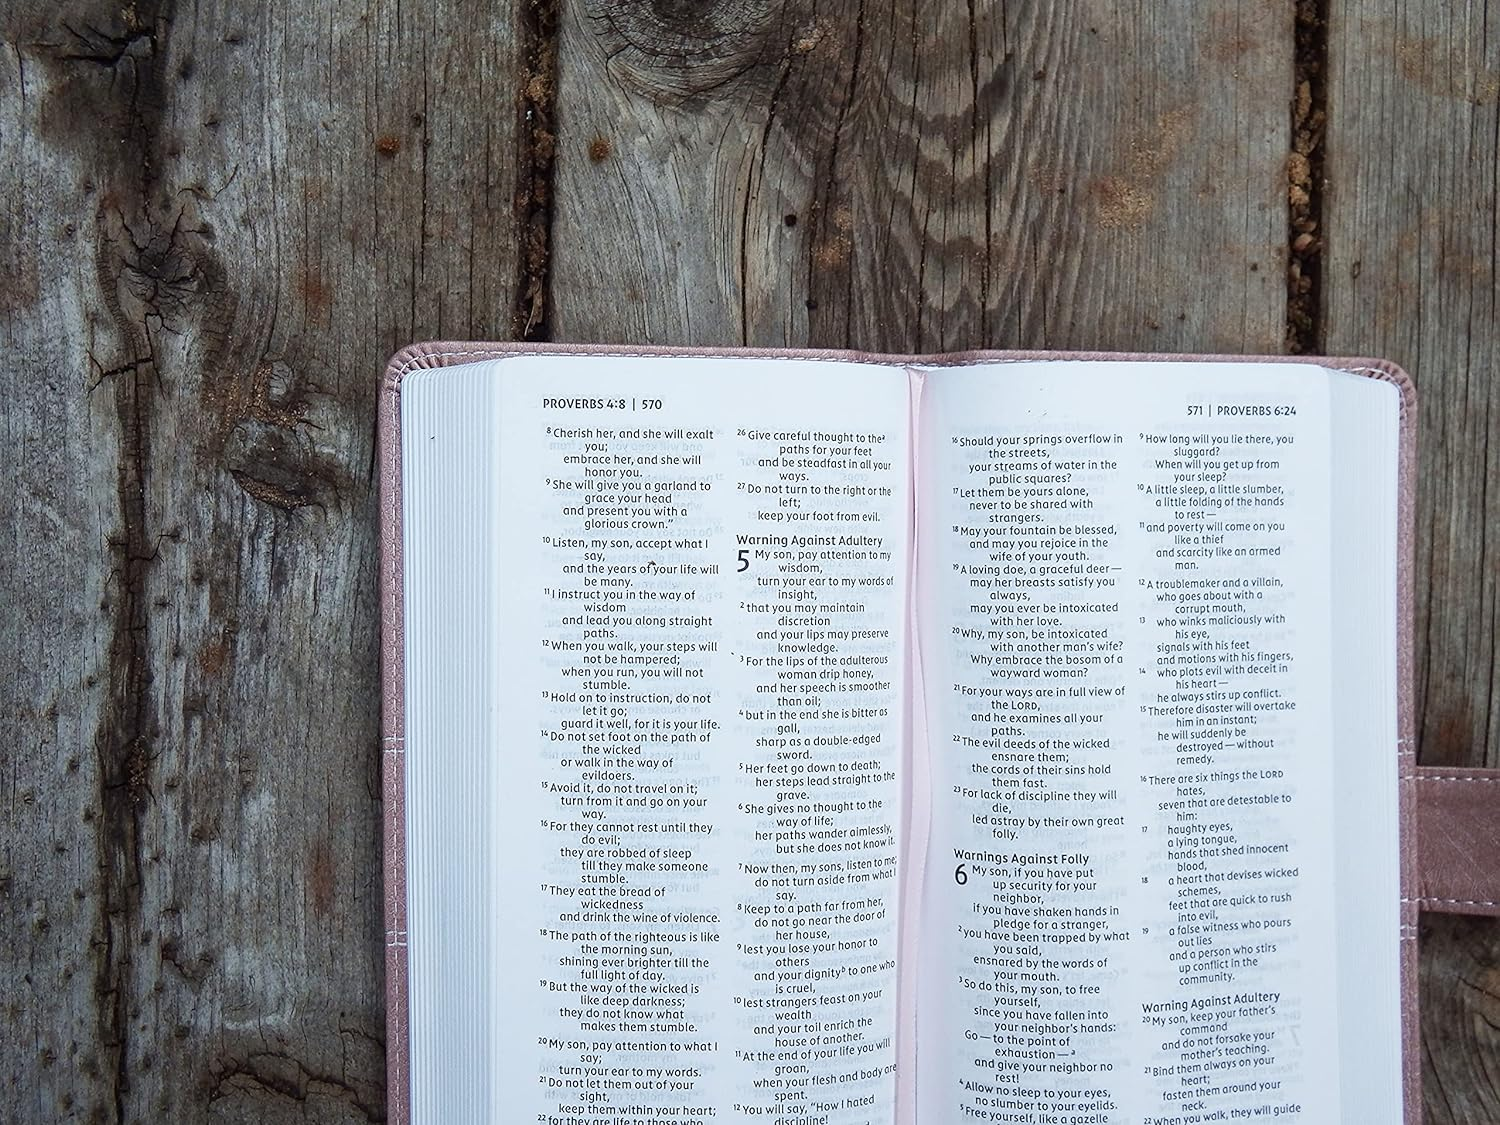 PROVERBS 4:8 | 570
8 Cherish her, and she will exalt
you;
embrace her, and she will
honor you.
9 She will give you a garland to
grace your head
and present you with a
glorious crown.”
10 Listen, my son, accept what I
say,
and the years of your life will
be many.
11 I instruct you in the way of
wisdom
and lead you along straight
paths.
12 When you walk, your steps will
not be hampered;
when you run, you will not
stumble.
13 Hold on to instruction, do not
let it go;
guard it well, for it is your life.
14 Do not set foot on the path of
the wicked
or walk in the way of
evildoers.
15 Avoid it, do not travel on it;
turn from it and go on your
way.
16 For they cannot rest until they
do evil;
they are robbed of sleep
till they make someone
stumble.
17 They eat the bread of
wickedness
and drink the wine of violence.
18 The path of the righteous is like
the morning sun,
shining ever brighter till the
full light of day.
19 But the way of the wicked is
like deep darkness;
they do not know what
makes them stumble.
20 My son, pay attention to what I
say;
turn your ear to my words.
21 Do not let them out of your
sight,
keep them within your heart;
22 for they are life to those who
26 Give careful thought to the a
paths for your feet
and be steadfast in all your
ways.
27 Do not turn to the right or the
left;
keep your foot from evil.
Warning Against Adultery
5 My son, pay attention to my
wisdom,
turn your ear to my words of
insight,
2 that you may maintain
discretion
and your lips may preserve
knowledge.
3 For the lips of the adulterous
woman drip honey,
and her speech is smoother
than oil;
4 but in the end she is bitter as
gall,
sharp as a double-edged
sword.
5 Her feet go down to death;
her steps lead straight to the
grave.
6 She gives no thought to the
way of life;
her paths wander aimlessly,
but she does not know it.
7 Now then, my sons, listen to me;
do not turn aside from what I
say.
8 Keep to a path far from her,
do not go near the door of
her house,
9 lest you lose your honor to
others
and your dignity b to one who
is cruel,
10 lest strangers feast on your
wealth
and your toil enrich the
house of another.
11 At the end of your life you will
groan,
when your flesh and body are
spent.
12 You will say, “How I hated
discipline!
571 | PROVERBS 6:24
16 Should your springs overflow in
the streets,
your streams of water in the
public squares?
17 Let them be yours alone,
never to be shared with
strangers.
18 May your fountain be blessed,
and may you rejoice in the
wife of your youth.
19 A loving doe, a graceful deer—
may her breasts satisfy you
always,
may you ever be intoxicated
with her love.
20 Why, my son, be intoxicated
with another man's wife?
Why embrace the bosom of a
wayward woman?
21 For your ways are in full view of
the LORD,
and he examines all your
paths.
22 The evil deeds of the wicked
ensnare them;
the cords of their sins hold
them fast.
23 For lack of discipline they will
die,
led astray by their own great
folly.
Warnings Against Folly
6 My son, if you have put
up security for your
neighbor,
if you have shaken hands in
pledge for a stranger,
2 you have been trapped by what
you said,
ensnared by the words of
your mouth.
3 So do this, my son, to free
yourself,
since you have fallen into
your neighbor's hands:
Go—to the point of
exhaustion— a
and give your neighbor no
rest!
4 Allow no sleep to your eyes,
no slumber to your eyelids.
5 Free yourself, like a gazelle
9 How long will you lie there, you
sluggard?
When will you get up from
your sleep?
10 A little sleep, a little slumber,
a little folding of the hands
to rest—
11 and poverty will come on you
like a thief
and scarcity like an armed
man.
12 A troublemaker and a villain,
who goes about with a
corrupt mouth,
13 who winks maliciously with
his eye,
signals with his feet
and motions with his fingers,
14 who plots evil with deceit in
his heart—
he always stirs up conflict.
15 Therefore disaster will overtake
him in an instant;
he will suddenly be
destroyed—without
remedy.
16 There are six things the LORD
hates,
seven that are detestable to
him:
17 haughty eyes,
a lying tongue,
hands that shed innocent
blood,
18 a heart that devises wicked
schemes,
feet that are quick to rush
into evil,
19 a false witness who pours
out lies
and a person who stirs
up conflict in the
community.
Warning Against Adultery
20 My son, keep your father's
command
and do not forsake your
mother's teaching.
21 Bind them always on your
heart;
fasten them around your
neck.
22 When you walk, they will guide